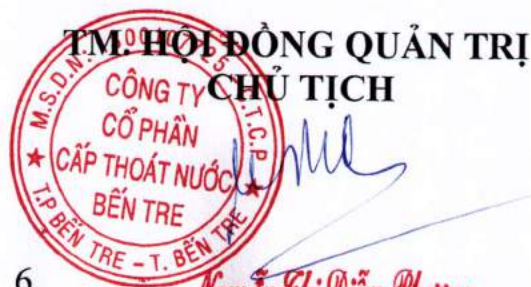 TM. HỘI ĐỒNG QUẢN TRỊ
CHỦ TỊCH
CÔNG TY
CỔ PHẦN
CẤP THOÁT NƯỚC
BẾN TRE
T.P BẾN TRE - T. BẾN TRE
6